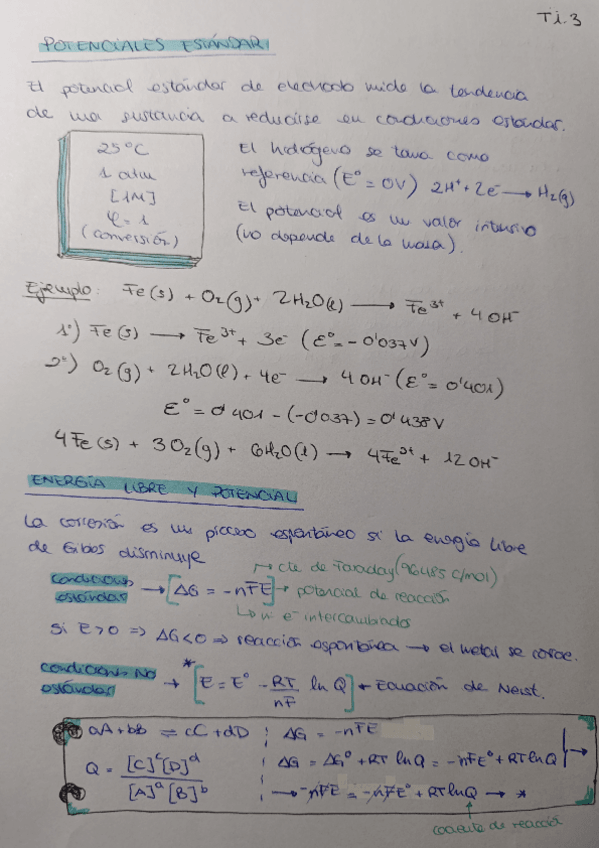 Ti.3
POTENCIALES ESTÁNDAR
El potencial estándar de electrodo mide la tendencia
de una sustancia a reducirse en condiciones estándar.
25°C
1 atm
[1M]
φ = 1
(conversión)
El hidrógeno se toma como
referencia (E° = 0V) 2H⁺ + 2e⁻ → H₂(g)
El potencial es un valor intensivo
(no depende de la masa).
Ejemplo: Fe(s) + O₂(g) + 2H₂O(l) → Fe³⁺ + 4OH⁻
1º) Fe(s) → Fe³⁺ + 3e⁻ (E° = -0'037V)
2º) O₂(g) + 2H₂O(l) + 4e⁻ → 4OH⁻ (E° = 0'401)
E° = 0'401 - (-0'037) = 0'438V
4Fe(s) + 3O₂(g) + 6H₂O(l) → 4Fe³⁺ + 12OH⁻
ENERGÍA LIBRE Y POTENCIAL
La corrosión es un proceso espontáneo si la energía libre
de Gibbs disminuye
→ cte de Faraday (96485 C/mol)
condiciones estándar → [ΔG = -nFE] → potencial de reacción
↳ nº e⁻ intercambiados
si E>0 ⇒ ΔG<0 ⇒ reacción espontánea → el metal se corroe.
condiciones NO estándar → * [E = E° - RT/nF ln Q] → Ecuación de Nernst.
aA + bB ⇌ cC + dD ¦ ΔG = -nFE
Q = [C]ᶜ[D]ᵈ / [A]ᵃ[B]ᵇ ¦ ΔG = ΔG° + RT ln Q = -nFE° + RT ln Q →
→ -nFE = -nFE° + RT ln Q → *
cociente de reacción